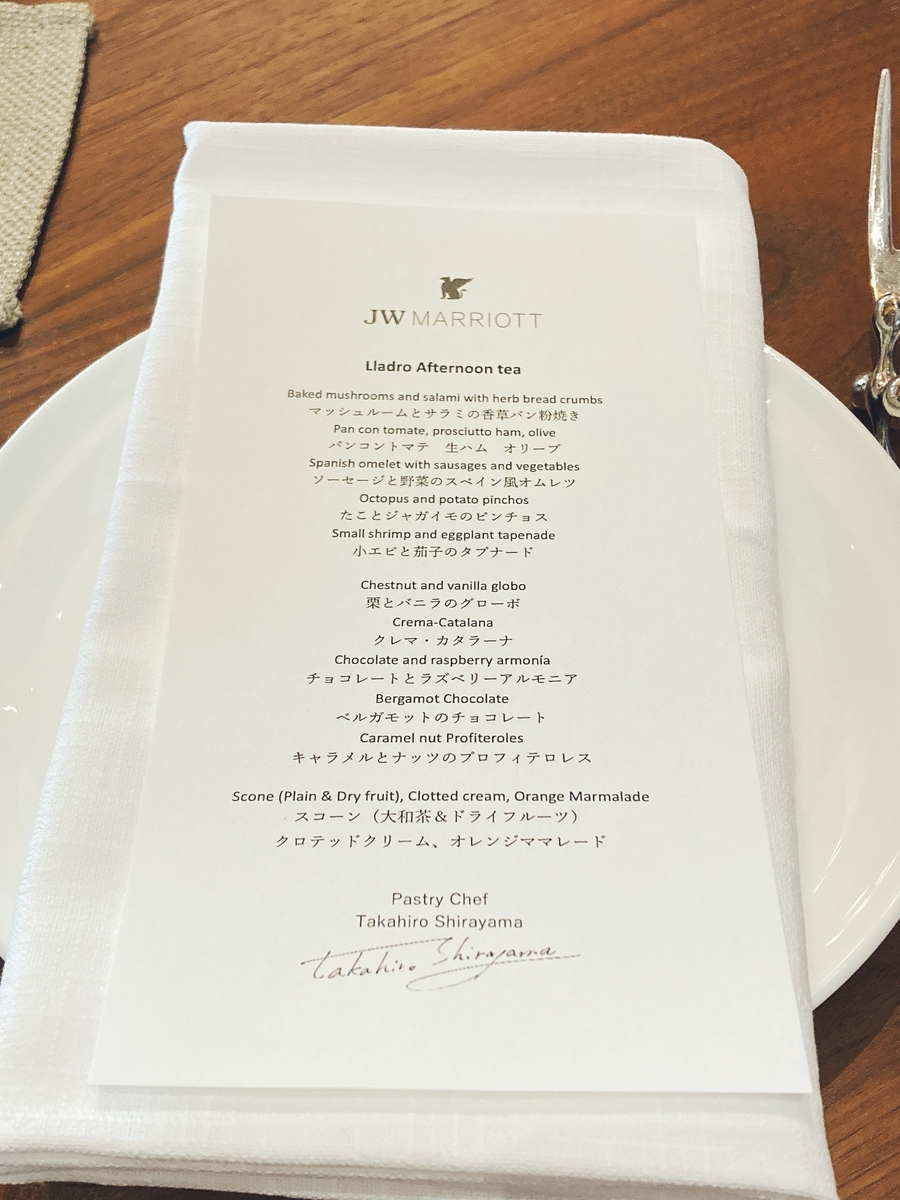 JW MARRIOTT
Lladro Afternoon tea
Baked mushrooms and salami with herb bread crumbs
マッシュルームとサラミの香草パン粉焼き
Pan con tomate, prosciutto ham, olive
パンコントマテ　生ハム　オリーブ
Spanish omelet with sausages and vegetables
ソーセージと野菜のスペイン風オムレツ
Octopus and potato pinchos
たことジャガイモのピンチョス
Small shrimp and eggplant tapenade
小エビと茄子のタプナード
Chestnut and vanilla globo
栗とバニラのグローボ
Crema-Catalana
クレマ・カタラーナ
Chocolate and raspberry armonía
チョコレートとラズベリーアルモニア
Bergamot Chocolate
ベルガモットのチョコレート
Caramel nut Profiteroles
キャラメルとナッツのプロフィテロレス
Scone (Plain & Dry fruit), Clotted cream, Orange Marmalade
スコーン（大和茶＆ドライフルーツ）
クロテッドクリーム、オレンジママレード
Pastry Chef
Takahiro Shirayama
Takahiro Shirayama